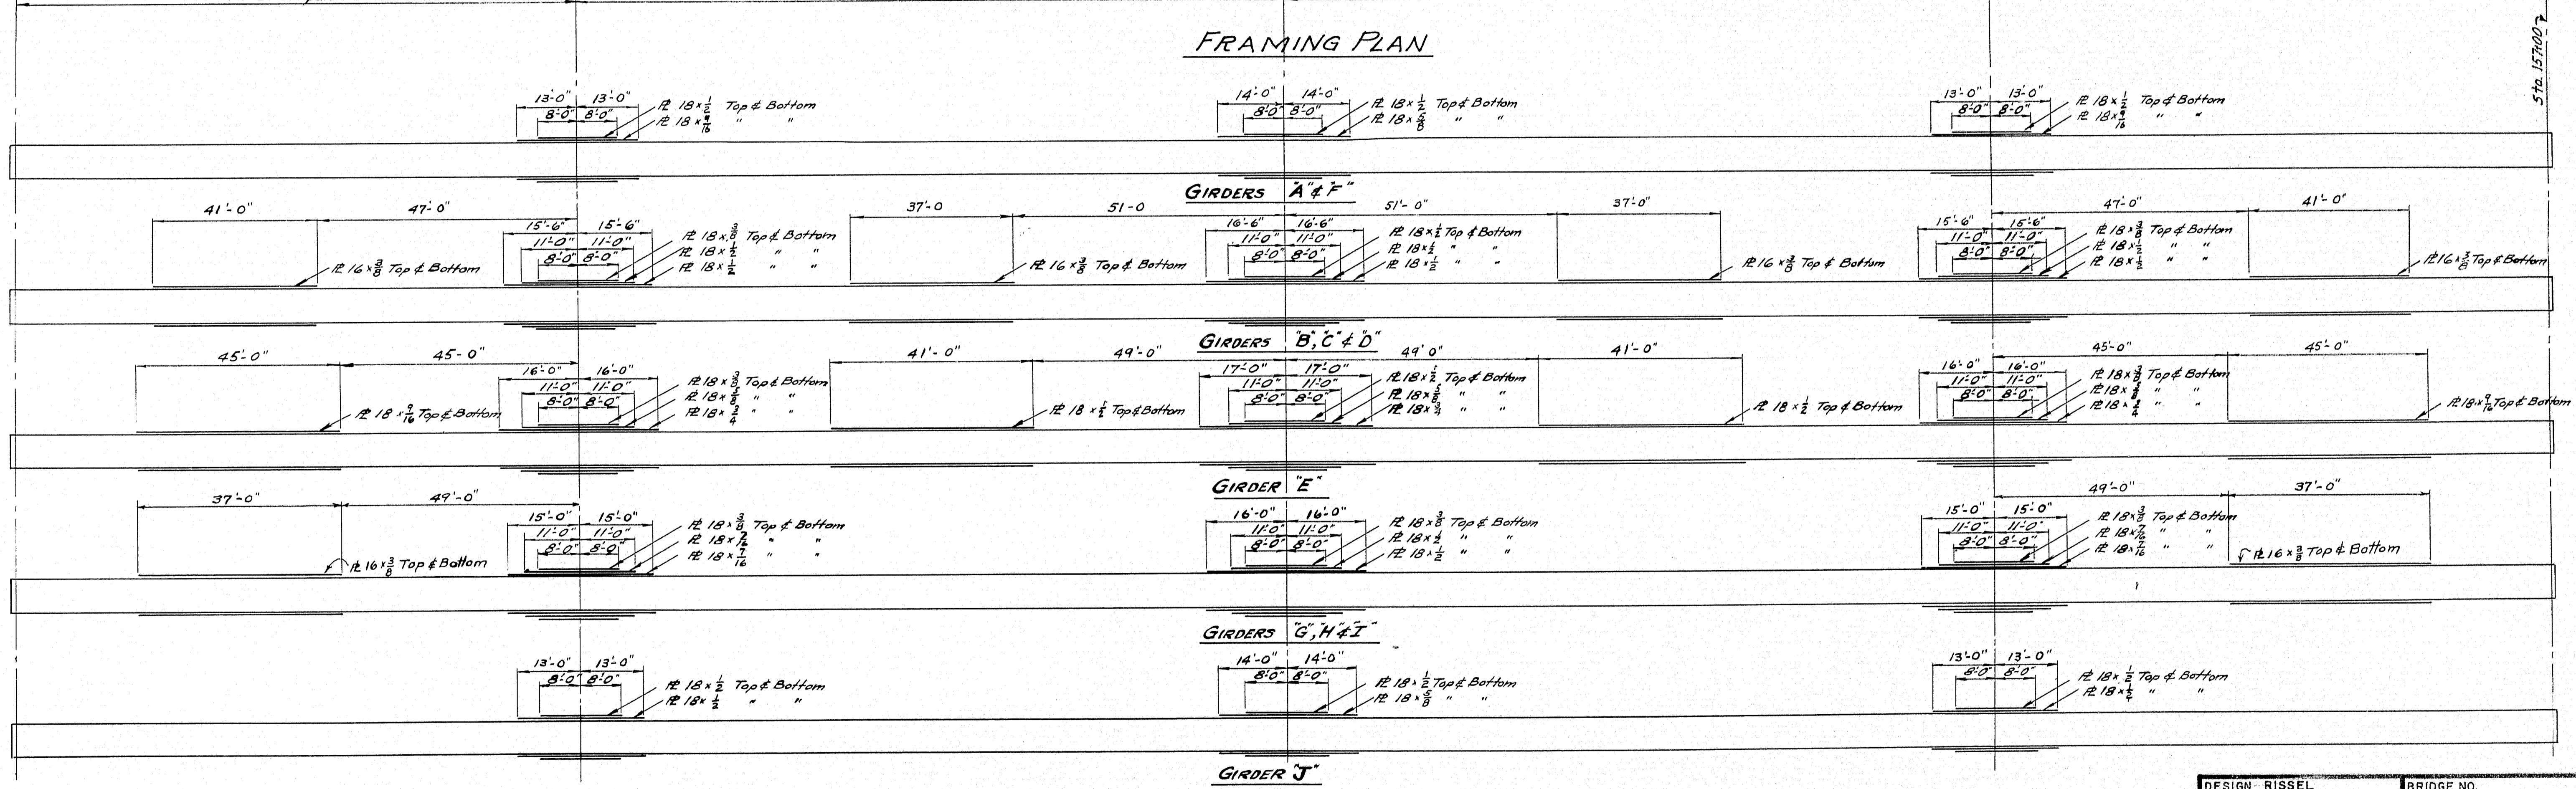 FRAMING PLAN
Sta. 157+00.7
13'-0" 13'-0"
8'-0" 8'-0"
PL 18 x 1/2 Top & Bottom
PL 18 x 9/16 " "
14'-0" 14'-0"
8'-0" 8'-0"
PL 18 x 1/2 Top & Bottom
PL 18 x 5/8 " "
13'-0" 13'-0"
8'-0" 8'-0"
PL 18 x 1/2 Top & Bottom
PL 18 x 9/16 " "
GIRDERS "A" & "F"
41'-0" 47'-0"
PL 16 x 3/8 Top & Bottom
15'-6" 15'-6"
11'-0" 11'-0"
8'-0" 8'-0"
PL 18 x 3/8 Top & Bottom
PL 18 x 1/2 " "
PL 18 x 1/2 " "
37'-0 51-0
PL 16 x 3/8 Top & Bottom
16'-6" 16'-6"
11'-0" 11'-0"
8'-0" 8'-0"
PL 18 x 1/2 Top & Bottom
PL 18 x 1/2 " "
PL 18 x 1/2 " "
51'-0" 37'-0"
PL 16 x 3/8 Top & Bottom
15'-6" 15'-6"
11'-0" 11'-0"
8'-0" 8'-0"
PL 18 x 3/8 Top & Bottom
PL 18 x 1/2 " "
PL 18 x 1/2 " "
47'-0" 41'-0"
PL 16 x 3/8 Top & Bottom
GIRDERS "B", "C" & "D"
45'-0" 45-0"
PL 18 x 9/16 Top & Bottom
16'-0" 16'-0"
11'-0" 11'-0"
8'-0" 8'-0"
PL 18 x 3/8 Top & Bottom
PL 18 x 5/8 " "
PL 18 x 3/4 " "
41'-0" 49'-0"
PL 18 x 1/2 Top & Bottom
17'-0" 17'-0"
11'-0" 11'-0"
8'-0" 8'-0"
PL 18 x 1/2 Top & Bottom
PL 18 x 5/8 " "
PL 18 x 3/4 " "
49'0" 41'-0"
PL 18 x 1/2 Top & Bottom
16'-0" 16'-0"
11'-0" 11'-0"
8'-0" 8'-0"
PL 18 x 3/8 Top & Bottom
PL 18 x 5/8 " "
PL 18 x 3/4 " "
45'-0" 45'-0"
PL 18 x 9/16 Top & Bottom
GIRDER "E"
37'-0" 49'-0"
PL 16 x 3/8 Top & Bottom
15'-0" 15'-0"
11'-0" 11'-0"
8'-0" 8'-0"
PL 18 x 3/8 Top & Bottom
PL 18 x 7/16 " "
PL 18 x 7/16 " "
16'-0" 16'-0"
11'-0" 11'-0"
8'-0" 8'-0"
PL 18 x 3/8 Top & Bottom
PL 18 x 1/2 " "
PL 18 x 1/2 " "
15'-0" 15'-0"
11'-0" 11'-0"
8'-0" 8'-0"
PL 18 x 3/8 Top & Bottom
PL 18 x 7/16 " "
PL 18 x 7/16 " "
49'-0" 37'-0"
PL 16 x 3/8 Top & Bottom
GIRDERS "G", "H" & "I"
13'-0" 13'-0"
8'-0" 8'-0"
PL 18 x 1/2 Top & Bottom
PL 18 x 1/2 " "
14'-0" 14'-0"
8'-0" 8'-0"
PL 18 x 1/2 Top & Bottom
PL 18 x 5/8 " "
13'-0" 13'-0"
8'-0" 8'-0"
PL 18 x 1/2 Top & Bottom
PL 18 x 1/2 " "
GIRDER "J"
DESIGN RISSEL
BRIDGE NO.